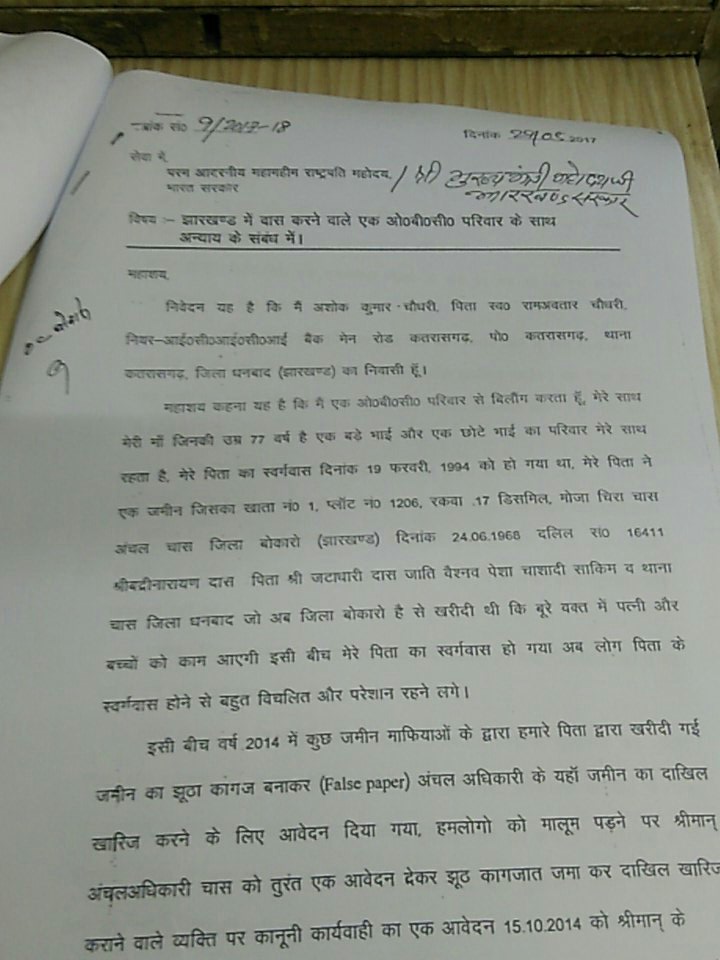 क्रमांक सं० 9/2017-18
दिनांक 29/05 2017
सेवा में,
परम आदरणीय महामहीम राष्ट्रपति महोदय, / श्री मुख्यमंत्री महोदय जी
भारत सरकार झारखण्ड सरकार
विषय :- झारखण्ड में वास करने वाले एक ओ०बी०सी० परिवार के साथ
अन्याय के संबंध में।
महाशय,
निवेदन यह है कि मैं अशोक कुमार चौधरी, पिता स्व० रामअवतार चौधरी,
नियर-आई०सी०आई०सी०आई बैंक मेन रोड कतरासगढ़, पो० कतरासगढ़, थाना
कतरासगढ़, जिला धनबाद (झारखण्ड) का निवासी हूँ।
महाशय कहना यह है कि मैं एक ओ०बी०सी० परिवार से बिलौंग करता हूँ, मेरे साथ
मेरी माँ जिनकी उम्र 77 वर्ष है एक बडे भाई और एक छोटे भाई का परिवार मेरे साथ
रहता है, मेरे पिता का स्वर्गवास दिनांक 19 फरवरी, 1994 को हो गया था, मेरे पिता ने
एक जमीन जिसका खाता नं० 1, प्लॉट नं० 1206, रकवा .17 डिसमिल, मोजा चिरा चास
अंचल चास जिला बोकारो (झारखण्ड) दिनांक 24.06.1968 दलिल सं० 16411
श्रीबद्रीनारायण दास पिता श्री जटाधारी दास जाति वैश्नव पेशा चाशादी साकिम व थाना
चास जिला धनबाद जो अब जिला बोकारो है से खरीदी थी कि बूरे वक्त में पत्नी और
बच्चों को काम आएगी इसी बीच मेरे पिता का स्वर्गवास हो गया अब लोग पिता के
स्वर्गवास होने से बहुत विचलित और परेशान रहने लगे।
इसी बीच वर्ष 2014 में कुछ जमीन माफियाओं के द्वारा हमारे पिता द्वारा खरीदी गई
जमीन का झूठा कागज बनाकर (False paper) अंचल अधिकारी के यहाँ जमीन का दाखिल
खारिज करने के लिए आवेदन दिया गया, हमलोगो को मालूम पड़ने पर श्रीमान्
अंचलअधिकारी चास को तुरंत एक आवेदन देकर झूठ कागजात जमा कर दाखिल खारिज
कराने वाले व्यक्ति पर कानूनी कार्यवाही का एक आवेदन 15.10.2014 को श्रीमान् के